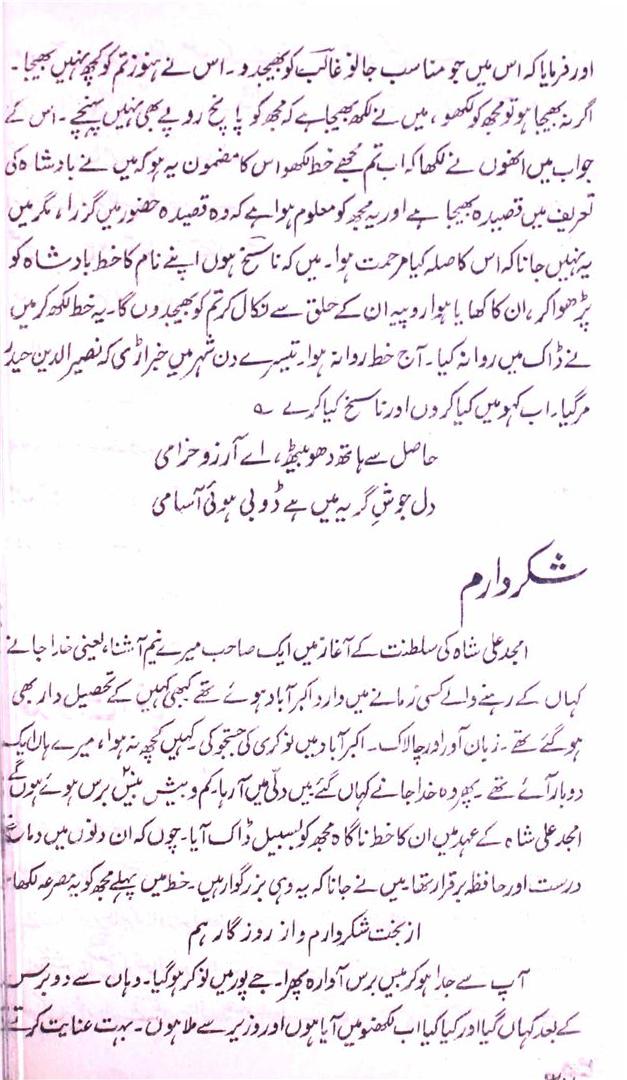 اور فرمایا کہ اس میں جو مناسب جانو غالب کو بھیجدو۔ اس نے ہنوز تم کو کچھ نہیں بھیجا۔
اگر نہ بھیجا ہو تو مجھ کو لکھو، میں نے لکھ بھیجا ہے کہ مجھ کو پانچ روپے بھی نہیں پہنچے۔ اس کے
جواب میں انھوں نے لکھا کہ اب تم مجھے خط لکھو اس کا مضمون یہ ہو کہ میں نے بادشاہ کی
تعریف میں قصیدہ بھیجا ہے اور یہ مجھ کو معلوم ہوا ہے کہ وہ قصیدہ حضور میں گزرا، مگر میں
یہ نہیں جانا کہ اس کا صلہ کیا مرحمت ہوا۔ میں کہ ناسخ ہوں اپنے نام کا خط بادشاہ کو
پڑھوا کر، ان کا کھایا ہوا روپیہ ان کے حلق سے نکال کر تم کو بھیجدوں گا۔ یہ خط لکھ کر میں
نے ڈاک میں روانہ کیا۔ آج خط روانہ ہوا۔ تیسرے دن شہر میں خبر اڑی کہ نصیر الدین حیدر
مر گیا۔ اب کہو میں کیا کروں اور ناسخ کیا کرے ؎
حاصل سے ہاتھ دھو بیٹھ، اے آرزو خرامی
دل جوشِ گریہ میں ہے ڈوبی ہوئی آسامی
شکر دارم
امجد علی شاہ کی سلطنت کے آغاز میں ایک صاحب میرے نیم آشنا، یعنی خدا جانے
کہاں کے رہنے والے کسی زمانے میں وارد اکبرآباد ہوئے تھے کبھی کہیں کے تحصیل دار بھی
ہو گئے تھے۔ زبان آور اور چالاک۔ اکبرآباد میں نوکری کی جستجو کی۔ کہیں کچھ نہ ہوا، میرے ہاں ایک
دو بار آئے تھے۔ پھر وہ خدا جانے کہاں گئے میں دلّی میں آ رہا۔ کم و بیش بیس برس ہوئے ہوں گے
امجد علی شاہ کے عہد میں ان کا خط ناگاہ مجھ کو بسبیل ڈاک آیا۔ چوں کہ ان دنوں میں دماغ
درست اور حافظہ برقرار تھا۔ میں نے جانا کہ یہ وہی بزرگوار ہیں۔ خط میں پہلے مجھ کو یہ مصرعہ لکھا۔
از بخت شکر دارم و از روزگار ہم
آپ سے جدا ہو کر بیس برس آوارہ پھرا۔ جے پور میں نوکر ہو گیا۔ وہاں سے دو برس
کے بعد کہاں گیا اور کیا کیا اب لکھنؤ میں آیا ہوں اور وزیر سے ملا ہوں۔ بہت عنایت کرتے